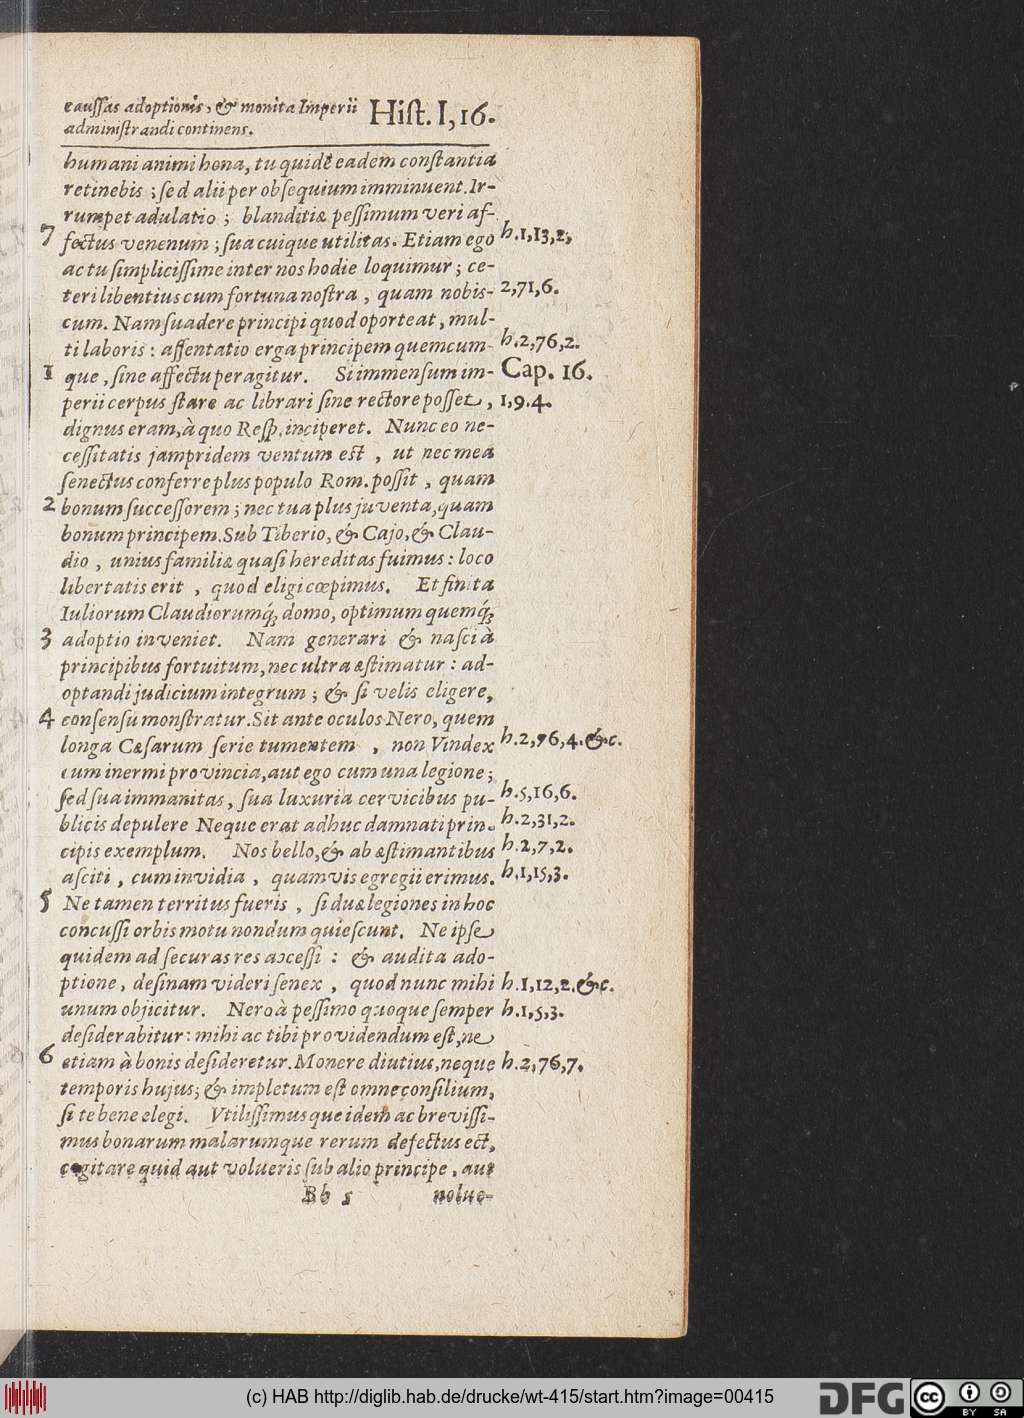 caussas adoptionis, & monita Imperii Hist. I, 16.
administrandi continens.
humani animi bona, tu quidẽ eadem constantia
retinebis ; sed alii per obsequium imminuent. Ir-
rumpet adulatio ; blanditiæ pessimum veri af-
7 fectus venenum ; sua cuique utilitas. Etiam ego h.1,13,2,
ac tu simplicissime inter nos hodie loquimur ; ce-
teri libentius cum fortuna nostra , quam nobis- 2,71,6.
cum. Nam suadere principi quod oporteat, mul-
ti laboris : assentatio erga principem quemcum- h.2,76,2.
1 que , sine affectu peragitur. Si immensum im- Cap. 16.
perii cerpus stare ac librari sine rectore posset, 1,9.4.
dignus eram, à quo Resp. inciperet. Nunc eo ne-
cessitatis jampridem ventum est , ut nec mea
senectus conferre plus populo Rom. possit , quam
2 bonum successorem ; nec tua plus juventa, quam
bonum principem. Sub Tiberio, & Cajo, & Clau-
dio , unius familiæ quasi hereditas fuimus : loco
libertatis erit , quod eligi cœpimus. Et finita
Iuliorum Claudiorumq́; domo, optimum quemq́;
3 adoptio inveniet. Nam generari & nasci à
principibus fortuitum, nec ultra æstimatur : ad-
optandi judicium integrum ; & si velis eligere,
4 consensu monstratur. Sit ante oculos Nero, quem
longa Cæsarum serie tumentem , non Vindex h.2,76,4.&c.
cum inermi provincia, aut ego cum una legione ;
sed sua immanitas, sua luxuria cervicibus pu- h.5,16,6.
blicis depulere Neque erat adhuc damnati prin- h.2,31,2.
cipis exemplum. Nos bello, & ab æstimantibus h.2,7,2.
asciti , cum invidia , quamvis egregii erimus. h.1,15,3.
5 Ne tamen territus fueris , si duæ legiones in hoc
concussi orbis motu nondum quiescunt. Ne ipse
quidem ad securas res accessi : & audita ado-
ptione, desinam videri senex , quod nunc mihi h.1,12,2.&c.
unum objicitur. Nero à pessimo quoque semper h.1,5,3.
desiderabitur : mihi ac tibi providendum est, ne
6 etiam à bonis desideretur. Monere diutius, neque h.2,76,7.
temporis hujus; & impletum est omne consilium,
si te bene elegi. Vtilissimusque idem ac brevissi-
mus bonarum malarumque rerum defectus ect,
cogitare quid aut volueris sub alio principe, aut
Bb 5 nolue-
(c) HAB http://diglib.hab.de/drucke/wt-415/start.htm?image=00415 DFG cc BY SA